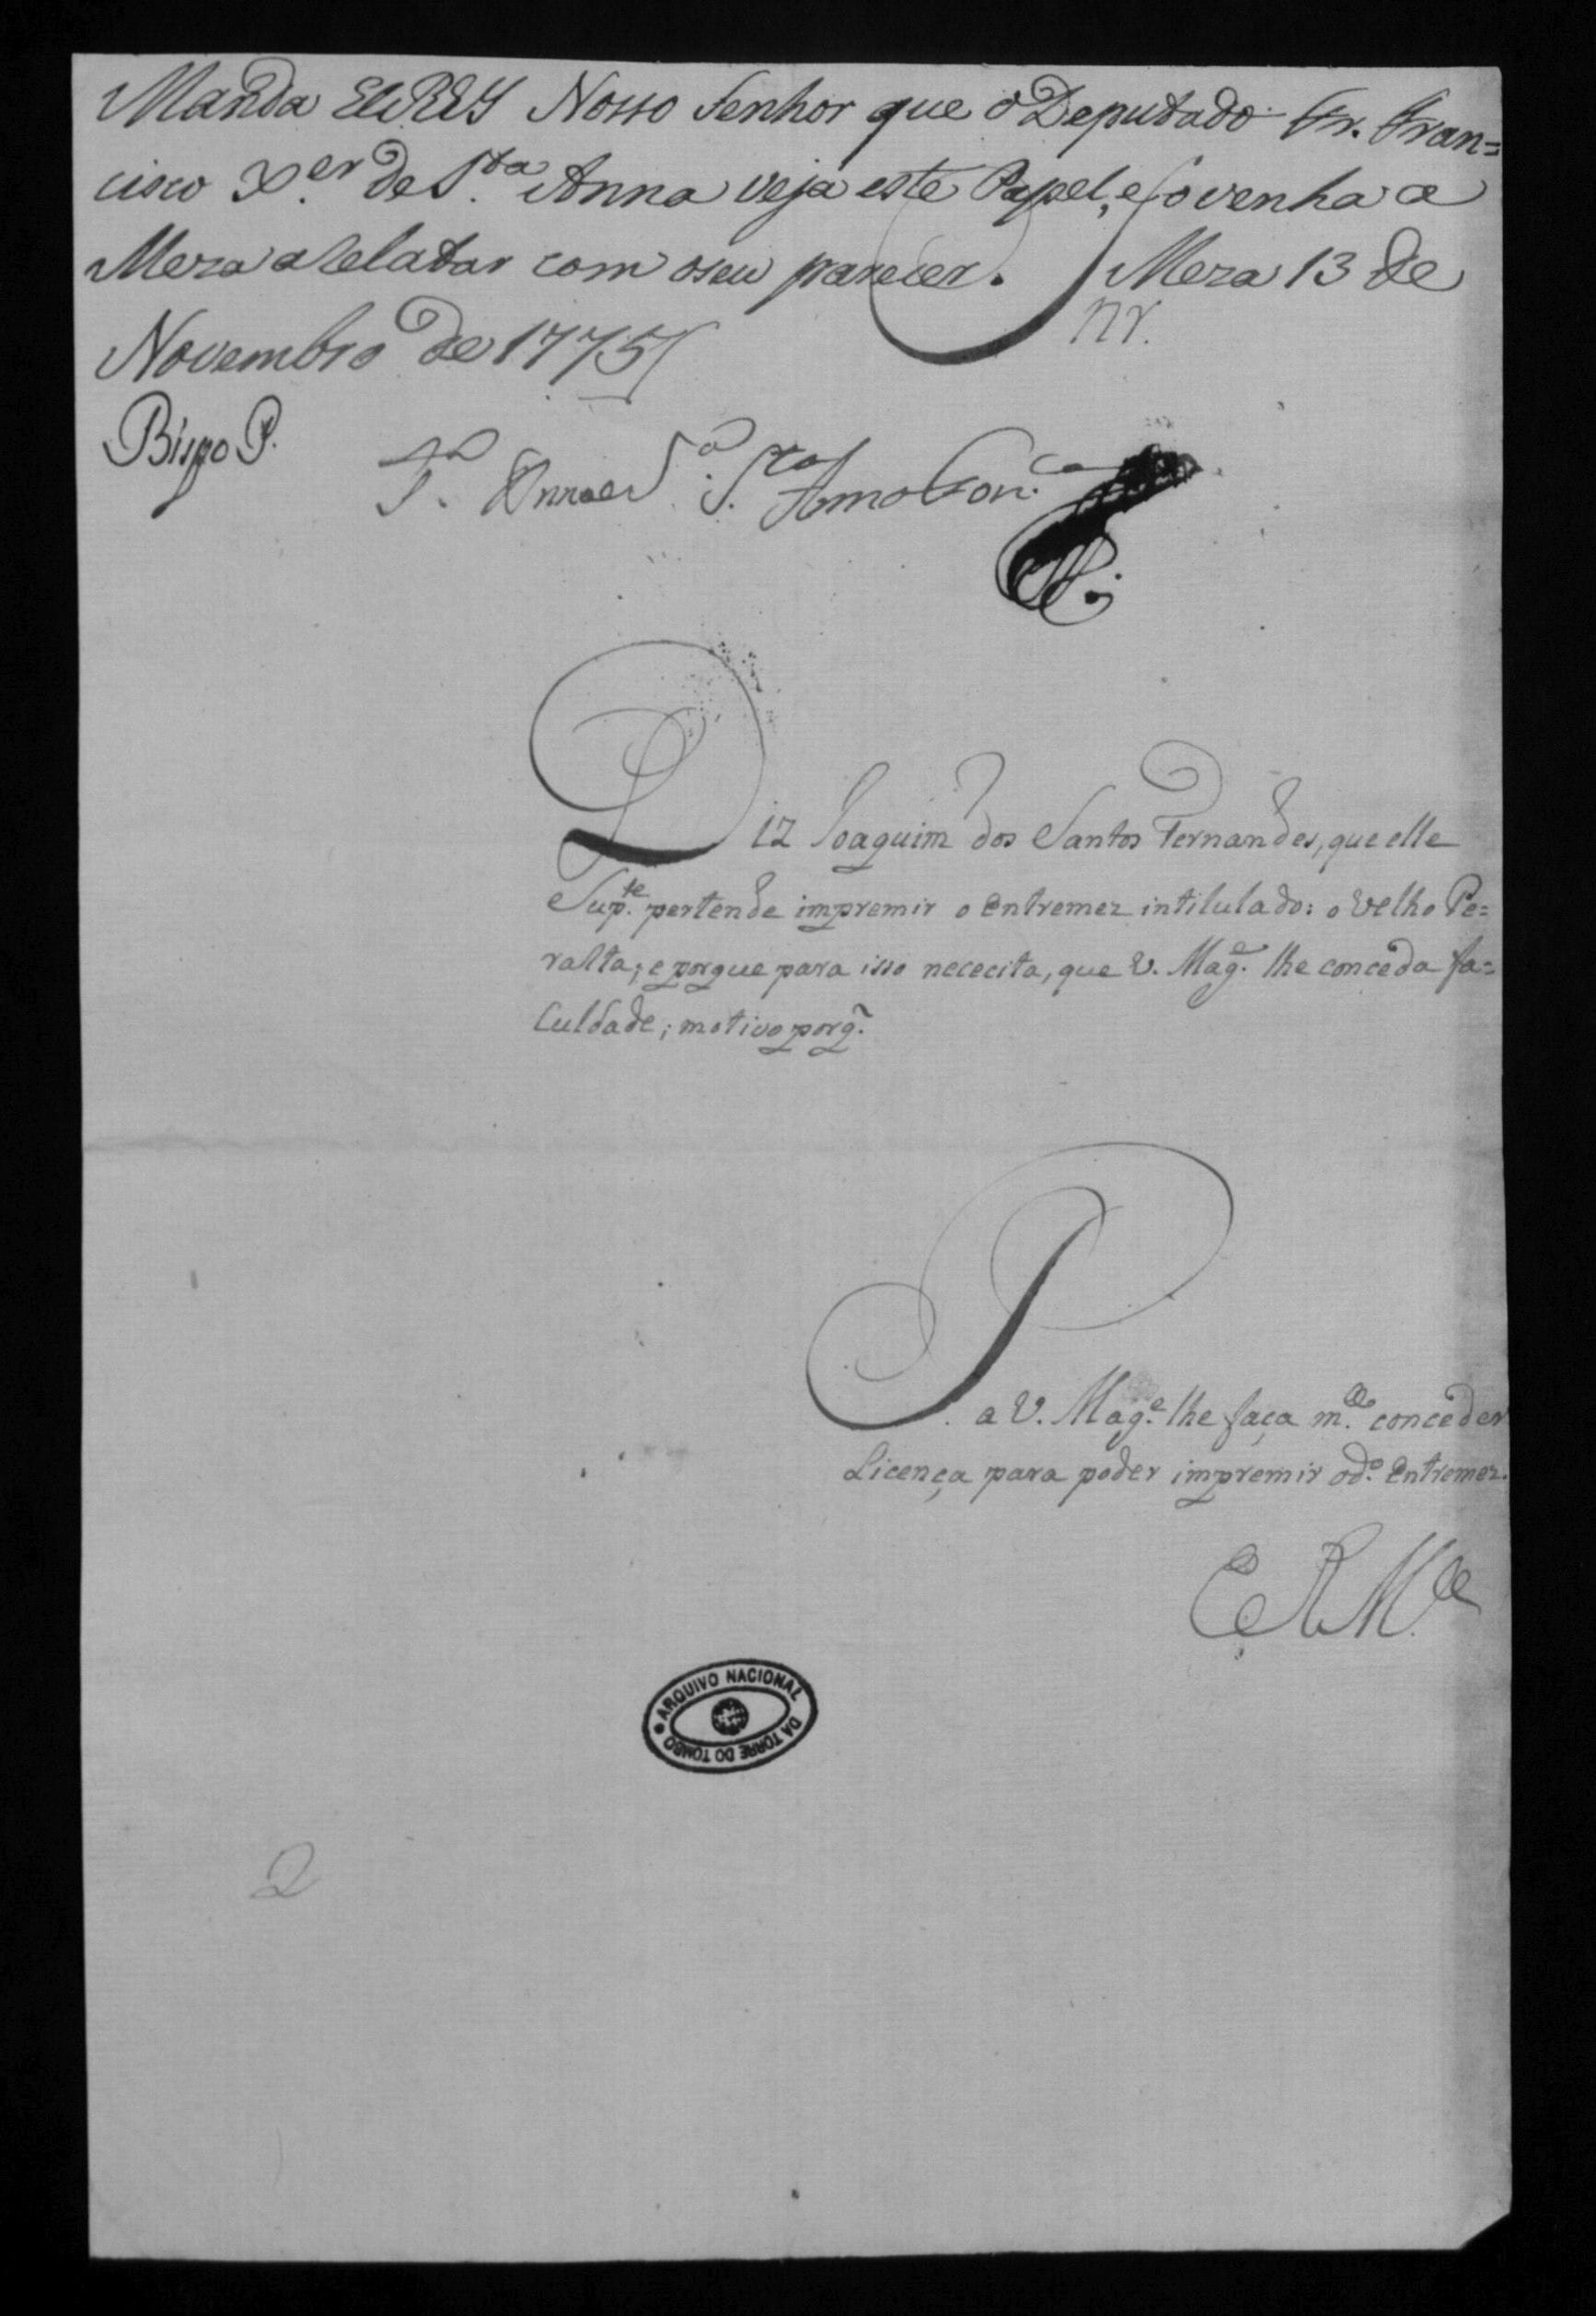 Manda ElREY Nosso Senhor que o Deputado Fr. Fran=
cisco X.er de S.ta Anna veja este Papel, e o venha a
Meza a Relatar com o seu parecer. Meza 13 de
Novembro de 1775
nr.
Bispo P.
Diz Joaquim dos Santos Fernandes, que elle
Sup.te pertende impremir o Entremez intitulado: o Velho Pe=
ralta; e porque para isso nececita, que V. Mag.e lhe conceda fa=
culdade; motivo porq̃.
P. a V. Mag.e lhe faça m.ce conceder
Licença para poder impremir o d.o Entremez.
E R M.ce
ARQUIVO NACIONAL DA TORRE DO TOMBO
2